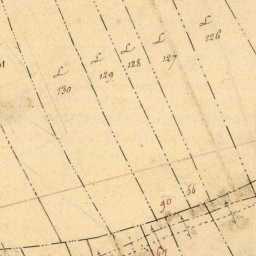 L
126
L
127
L
128
L
129
L
130
90
56